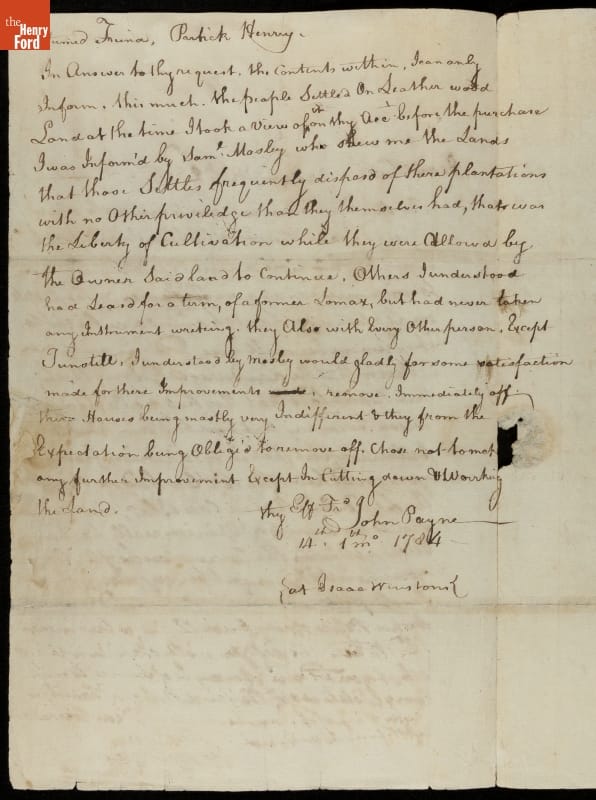 the
Henry
Ford
Friend, Patrick Henry.
In Answer to thy request, the Contents within, I can only
Inform, this much. the people Settled On Leather wood
Land at the time I took a View of it on thy Acct. before the purchase
I was Inform'd by Saml. Mosby who shew me the Lands
that those Settles frequently disposd of there plantations
with no Other priviledge than they themselves had, that was
the Liberty of Cultivation while they were Allowd by
the Owner Said land to Continue, Others I understood
had Leasd for a term, of a former Lomax, but had never taken
any Instrument wreting. they Also with Every Other person, Except
I understood by Mosby would gladly for some satisfaction
made for there Improvements remove Immediately off
there Houses being mostly very Indifferent & they from the
Expectation being Oblige'd to remove off. Chose not to mak
any further Improvement Except In Cutting down & Working
the Land.
thy Eff Frd
John Payne
4th 1st mo 1784
at Isaac Winstons